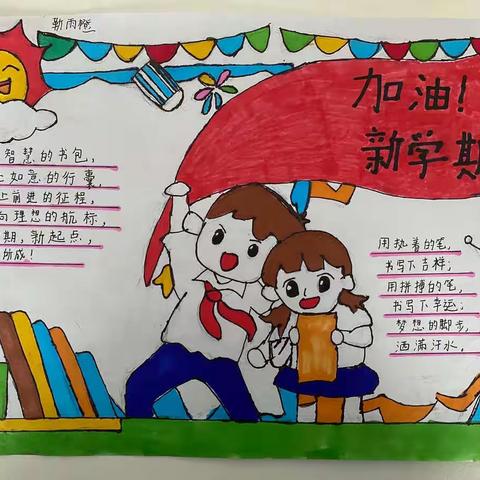 靳雨橙
加油!
新学期
智慧的书包,
上如意的行囊,
上前进的征程,
向理想的航标,
期,新起点,
所成!
用执着的笔,
书写下吉祥;
用拼搏的笔,
书写下幸运;
梦想的脚步,
洒满汗水,